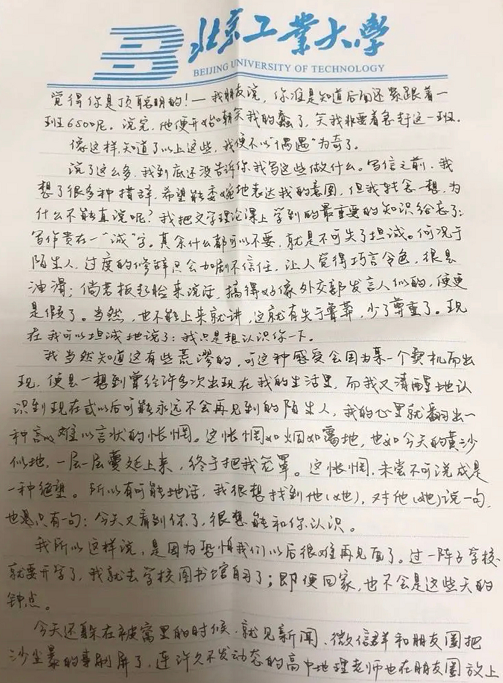 北京工业大学
BEIJING UNIVERSITY OF TECHNOLOGY
觉得你是顶聪明的!—我朋友说,你准是知道后面还紧跟着一
班650呢。说完,他便开始转笑我的蠢了,笑我非要着急赶这一班.
像这样,知道了以上这些,我便不以“偶遇”为奇了.
说了这么多,我到底还没告诉你我写这些做什么。写信之前,我
想了很多种措辞,希望能委婉地表达我的意图,但我转念一想,为
什么不能直说呢?我把文学理论课上学到的最重要的知识给忘了:
写作贵在一“诚”字。其余什么都可以不要,就是不可失了坦诚。何况于
陌生人,过度的修辞只会加剧不信任,让人觉得巧言令色,很是
油滑;倘若板起脸来说话,搞得好像外交部发言人似的,便更
是假了。当然,也不能上来就讲,这就有失于鲁莽,少了尊重了。现
在我可以坦诚地说了:我只是想认识你一下.
我当然知道这有些荒谬的,可这种感受会因为某一个契机而出
现,便是一想到曾经许多次出现在我的生活里,而我又清醒地认
识到现在或以后可能永远不会再见到的陌生人,我的心里就翻出一
种难以言状的怅惘。这怅惘如烟如霭地,也如今天的黄沙
似地,一层层蔓延上来,终于把我笼罩。这怅惘,未尝不可说成是
一种绝望。所以有可能地话,我很想找到他(她),对他(她)说一句,
也是只有一句:今天又看到你了,很想能和你认识。
我所以这样说,是因为恐怕我们以后很难再见面了。过一阵子学校
就要开学了,我就去学校图书馆自习了;即便回家,也不会是这些天的
钟点.
今天还躲在被窝里的时候,就见新闻、微信群和朋友圈把
沙尘暴的事刷屏了,连许久不发动态的高中地理老师也在朋友圈放上